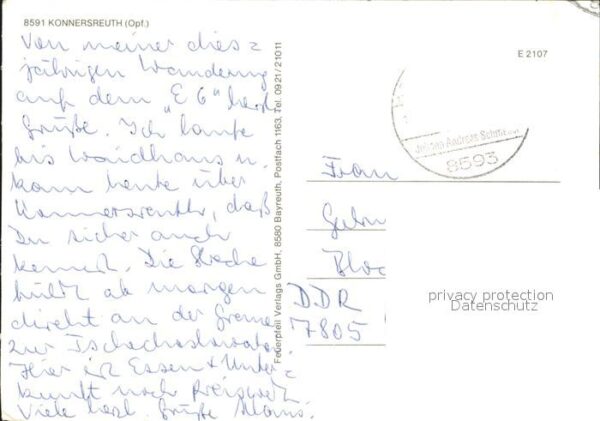 8591 KONNERSREUTH (Opf.)
Von meiner dies=
jährigen Wanderung
auf dem "E 6" herzl.
Grüße. Ich laufe
bis Waidhaus u.
kam heute über
Konnersreuth, daß
Du sicher auch
kennst. Die Strecke
führt ab morgen
direkt an der Grenze
zur Tschechoslowakei
Hier ist Essen + Unter=
kunft noch preiswert.
Viele herzl. Grüße
Feuerpfeil Verlags GmbH, 8580 Bayreuth, Postfach 1163, Tel. 0921/21011
E 2107
8593
Frau
DDR
7805
privacy protection
Datenschutz